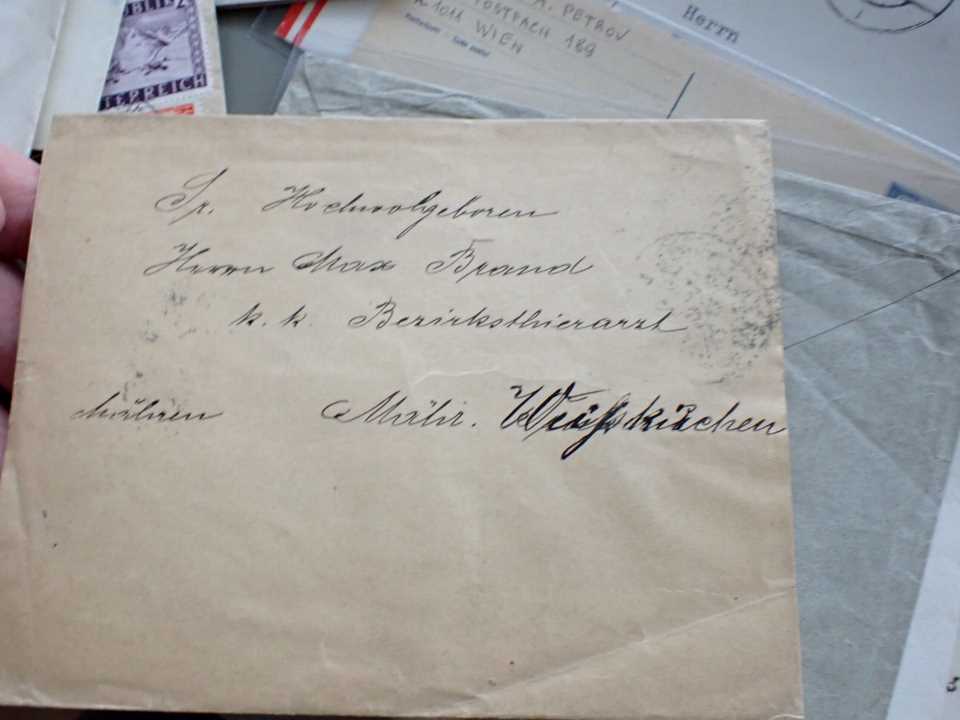 REPUBLIK
ÖSTERREICH
A. PETROV
POSTFACH 189
A-1011 WIEN
Herrn
Sr. Hochwolgeboren
Herrn Max Brand
k. k. Bezirksthierarzt
Mähren Mähr. Weißkirchen